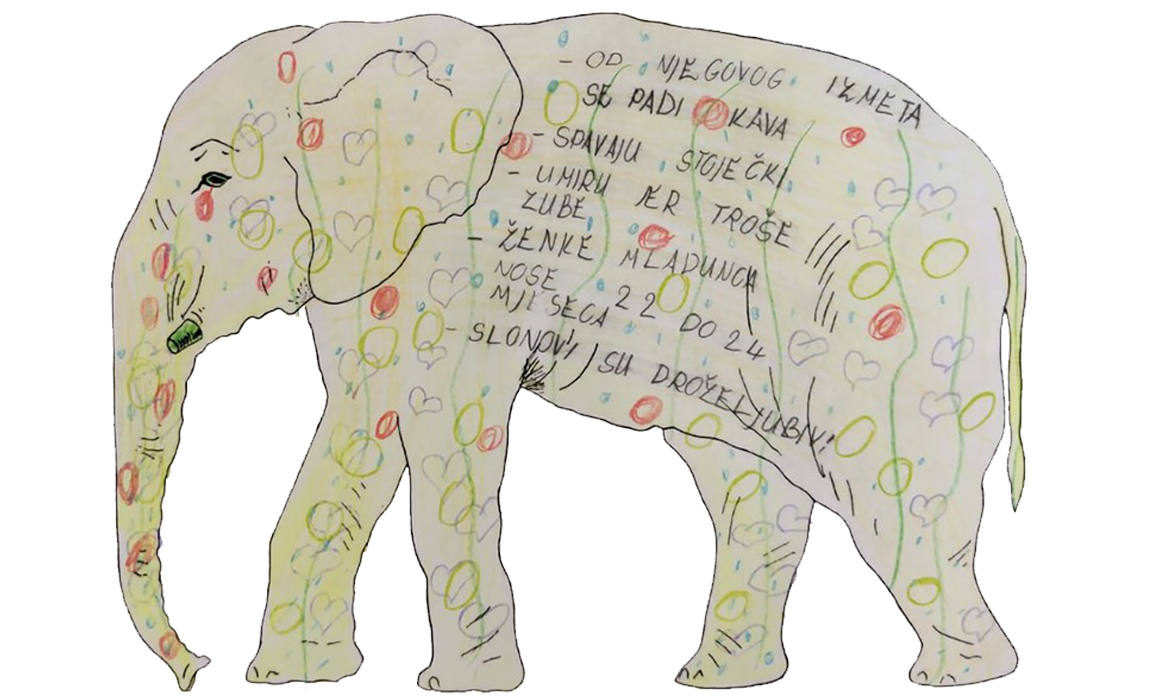 - OD NJEGOVOG IZMETA
SE PADI KAVA
- SPAVAJU STOJEČKI
- UMIRU JER TROŠE
ZUBE
- ŽENKE MLADUNCA
NOSE 22 DO 24
MJESECA
- SLONOVI SU DROŽELJUBIVI